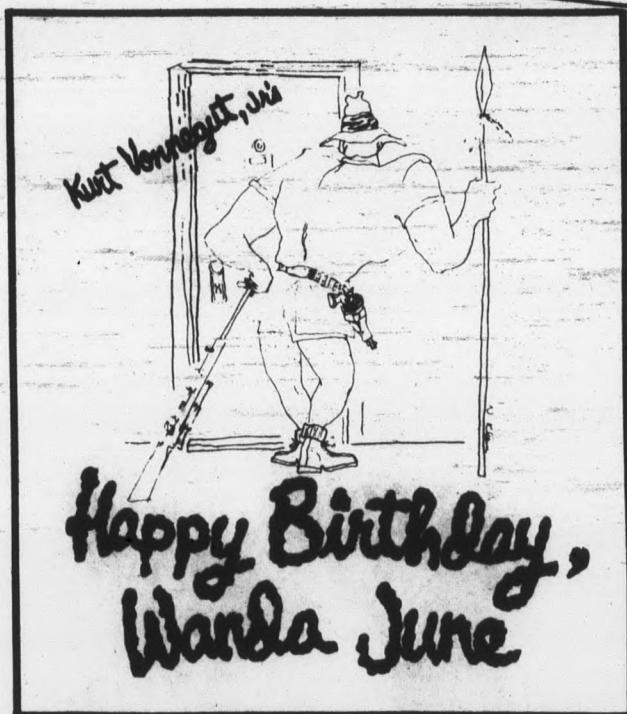 Kurt Vonnegut, Jr's
Happy Birthday,
Wanda June